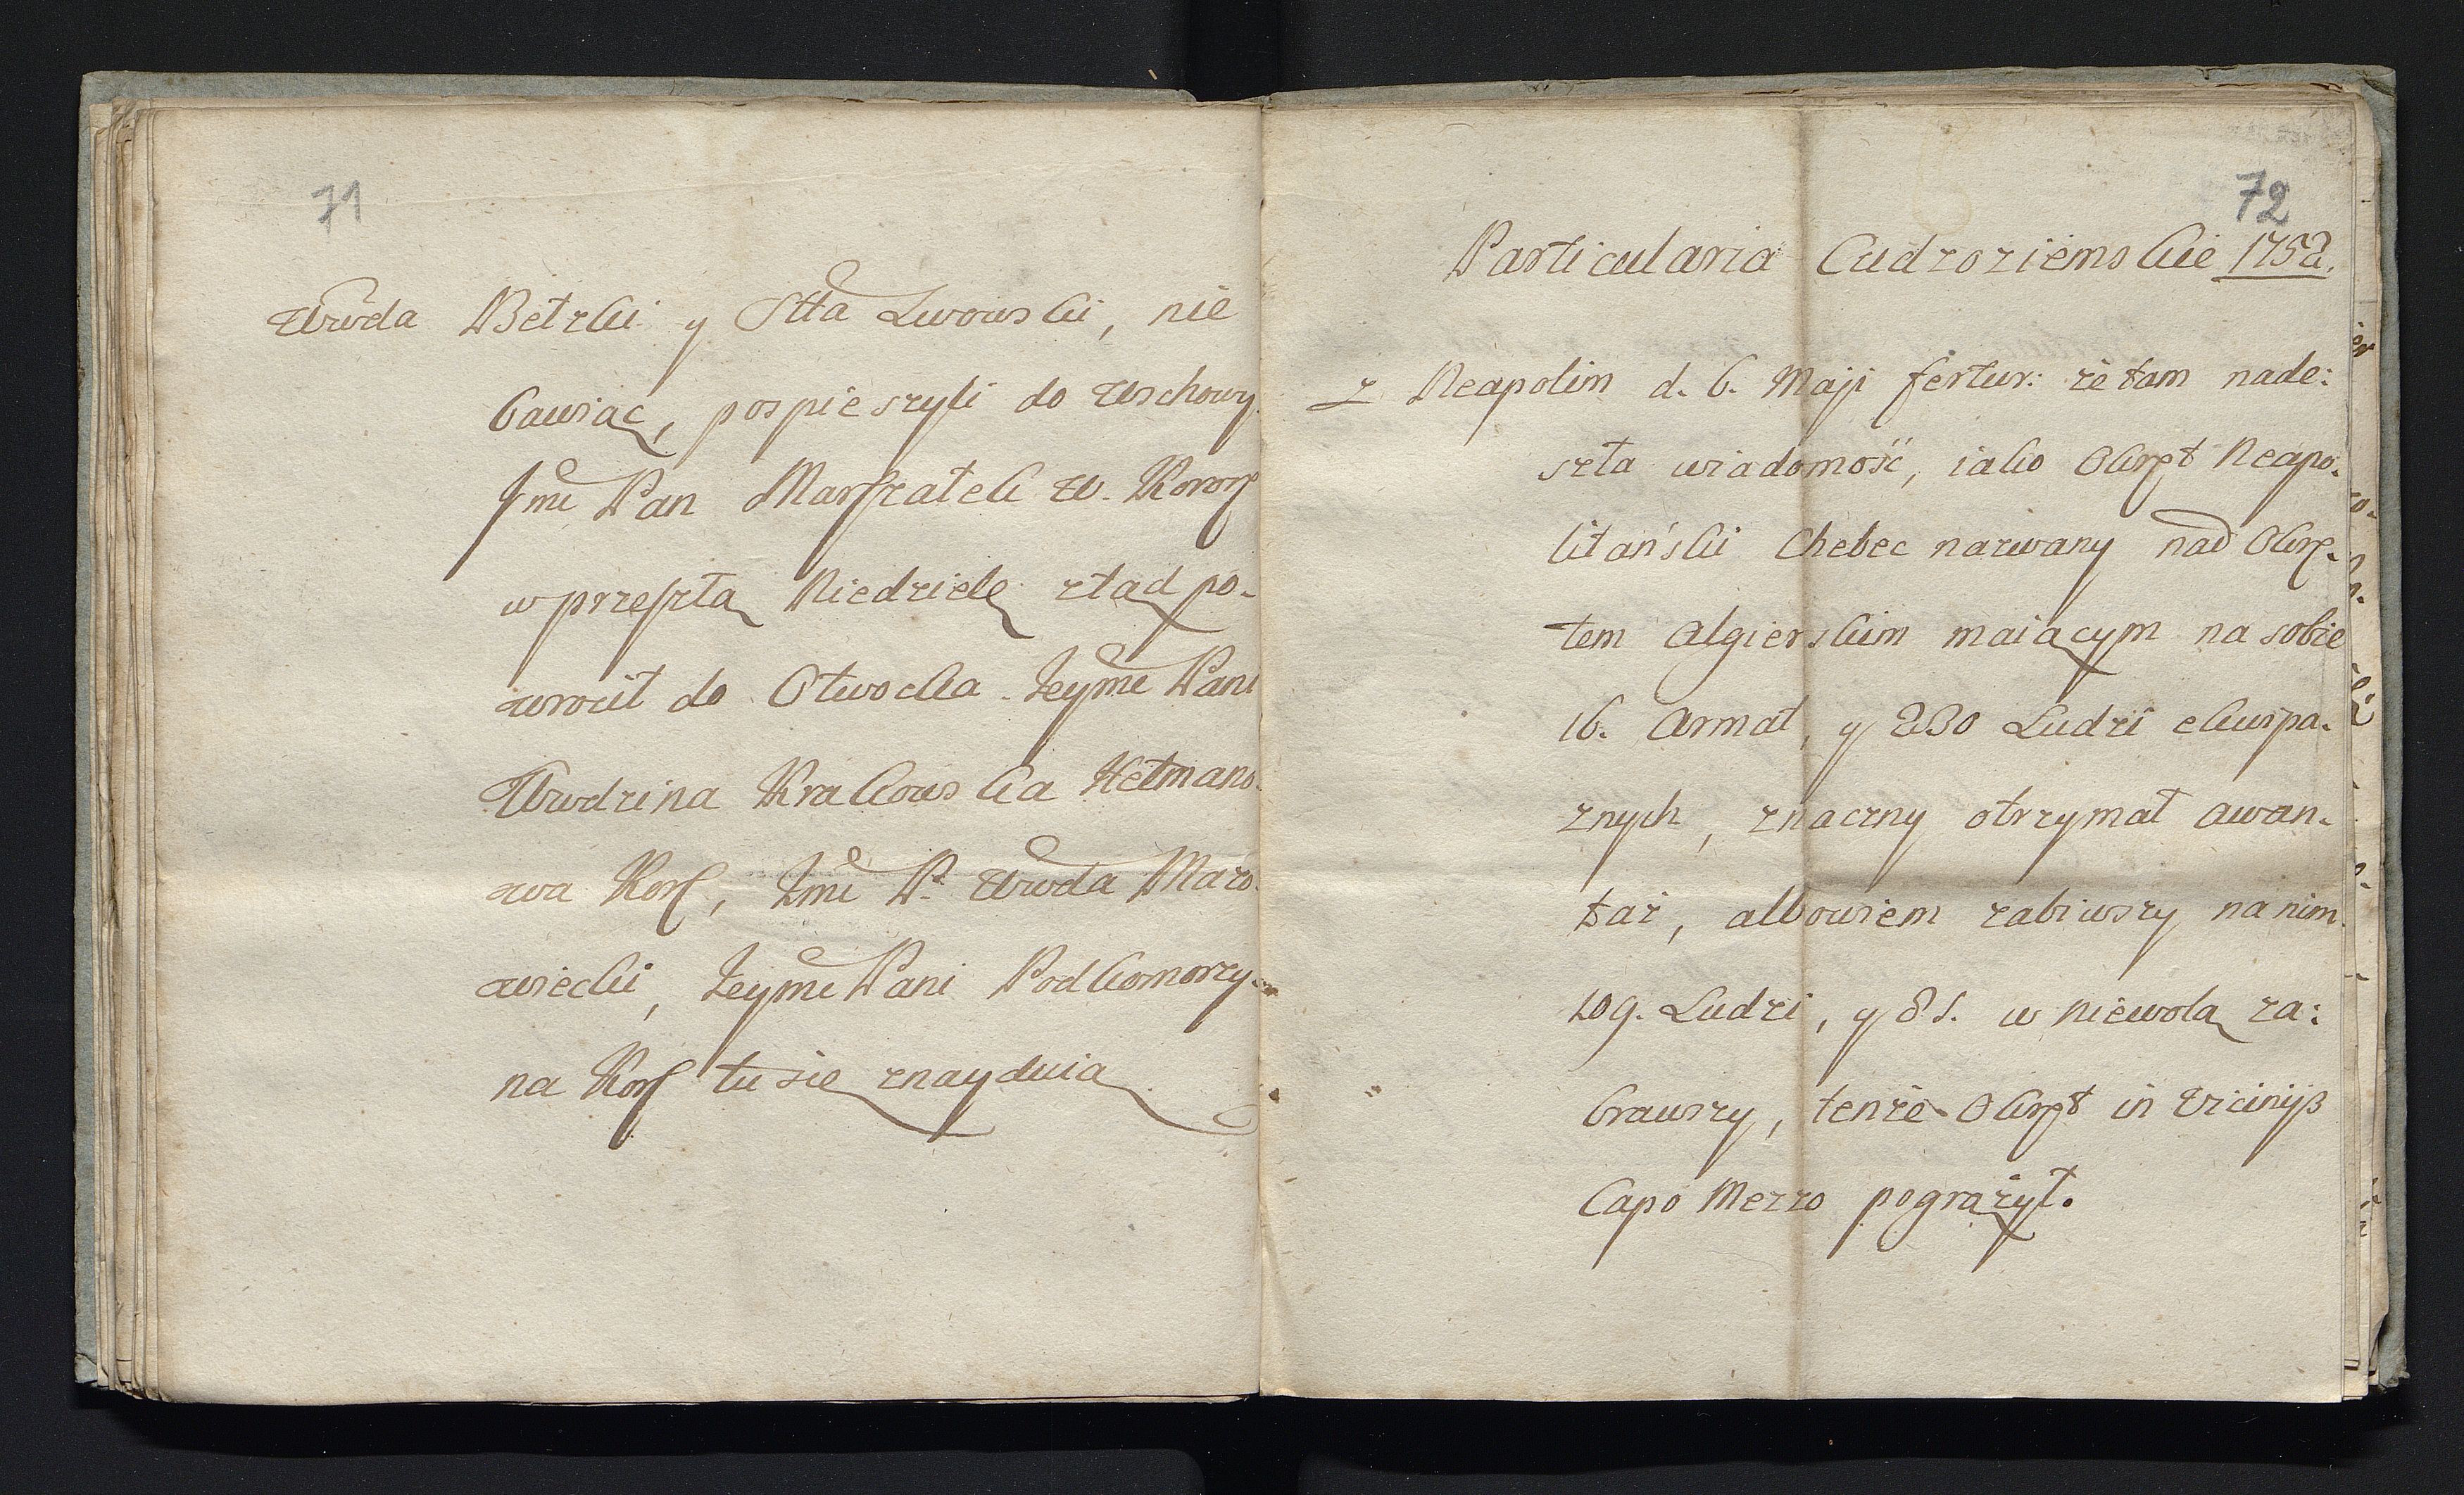 71
Wwda Bełzki y Stta Lwowski, nie
bawiąc, pospieszyli do Wschowy
Jmć Pan Marszałek W. Koron
w przeszłą Niedzielę ztąd po-
wrocił do Otwocka Jeymć Pani
Wwdzina Krakowska Hetmano-
wa Kor, Jmć P. Wwda Mazo-
wiecki, Jeymć Pani Podkomorzy-
na Kor tu się znayduią
72
Particularia Cudzoziemskie 1752.
z Neapolim d. 6. Maji fertur: że tam nade:
szła wiadomość, iako Okręt Neapo-
litański Chebec nazwany nad Okrę-
tem Algierskim maiącym na sobie
16. Armat, y 230 Ludzi ekwipa-
znych, znaczny otrzymał awan-
taż, albowiem zabiwszy na nim
109. Ludzi, y 81. w niewolą za:
brawszy, tenże Okręt in Vicinijs
Capo Mezzo pogrążył.